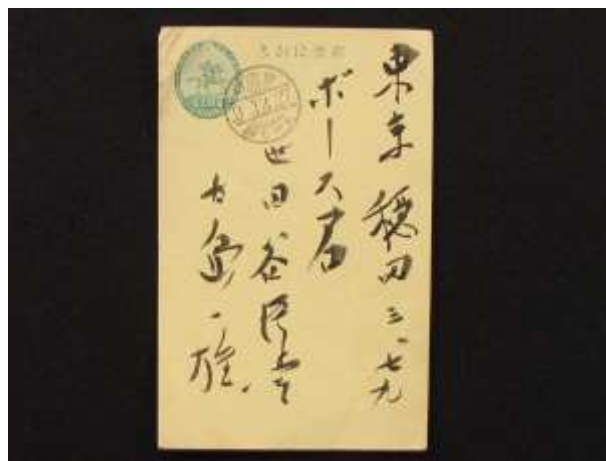 郵便はかき
東京 穏田三、七九
ボース君
世田谷区
古島一雄